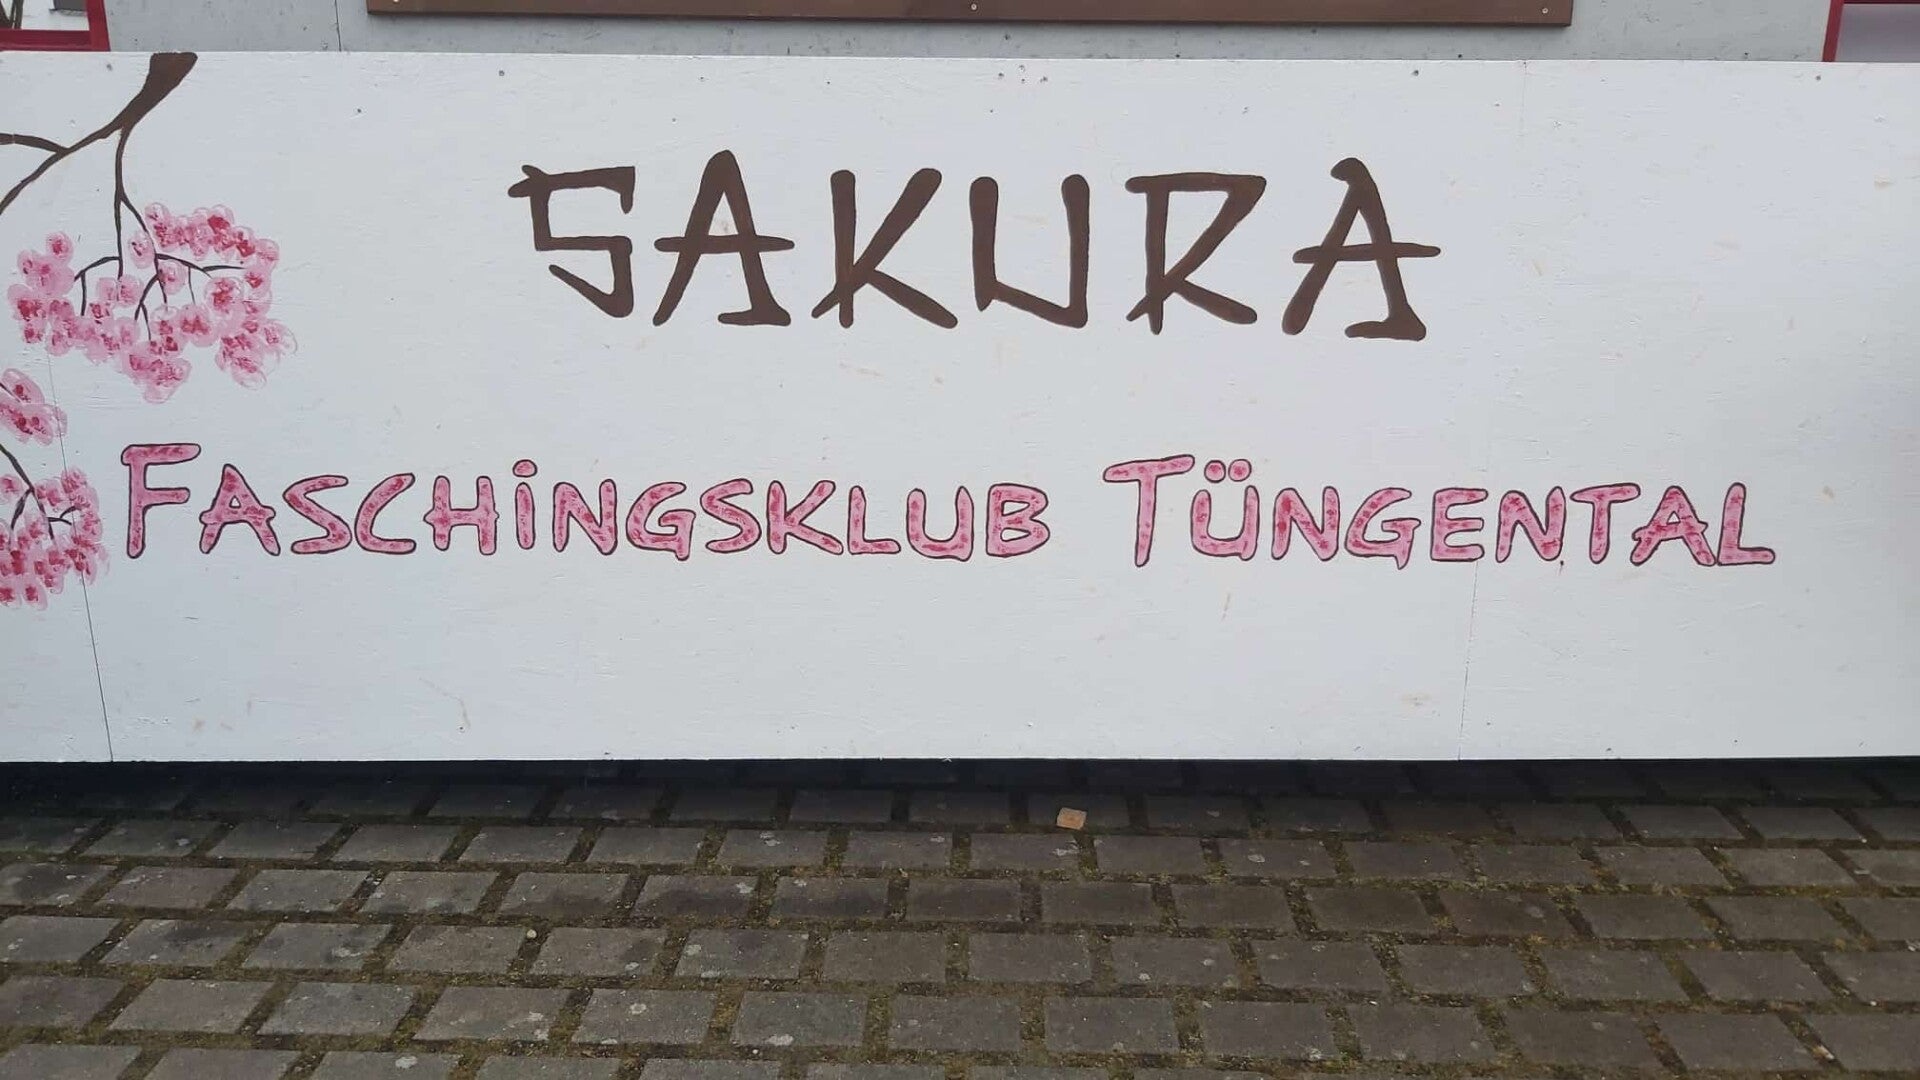 SAKURA
FASCHINGSKLUB TÜNGENTAL